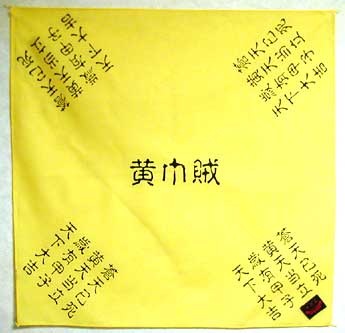 蒼天已死
黄天当立
歳有甲子
天下大吉
蒼天已死
黄天当立
歳有甲子
天下大吉
黄巾賊
蒼天已死
黄天当立
歳有甲子
天下大吉
蒼天已死
黄天当立
歳有甲子
天下大吉